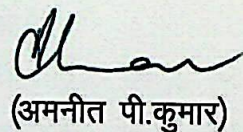 (अमनीत पी.कुमार)